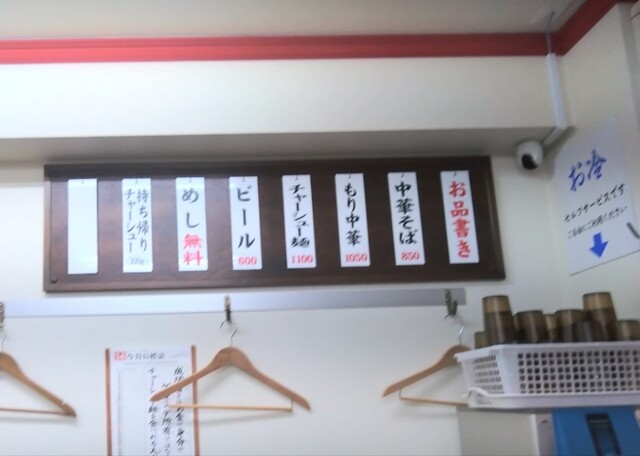 お品書き
中華そば
850
もり中華
1050
チャーシュー麺
1100
ビール
600
めし無料
持ち帰り
チャーシュー
お冷
セルフサービスです
ご自由にご利用ください
今月の標語